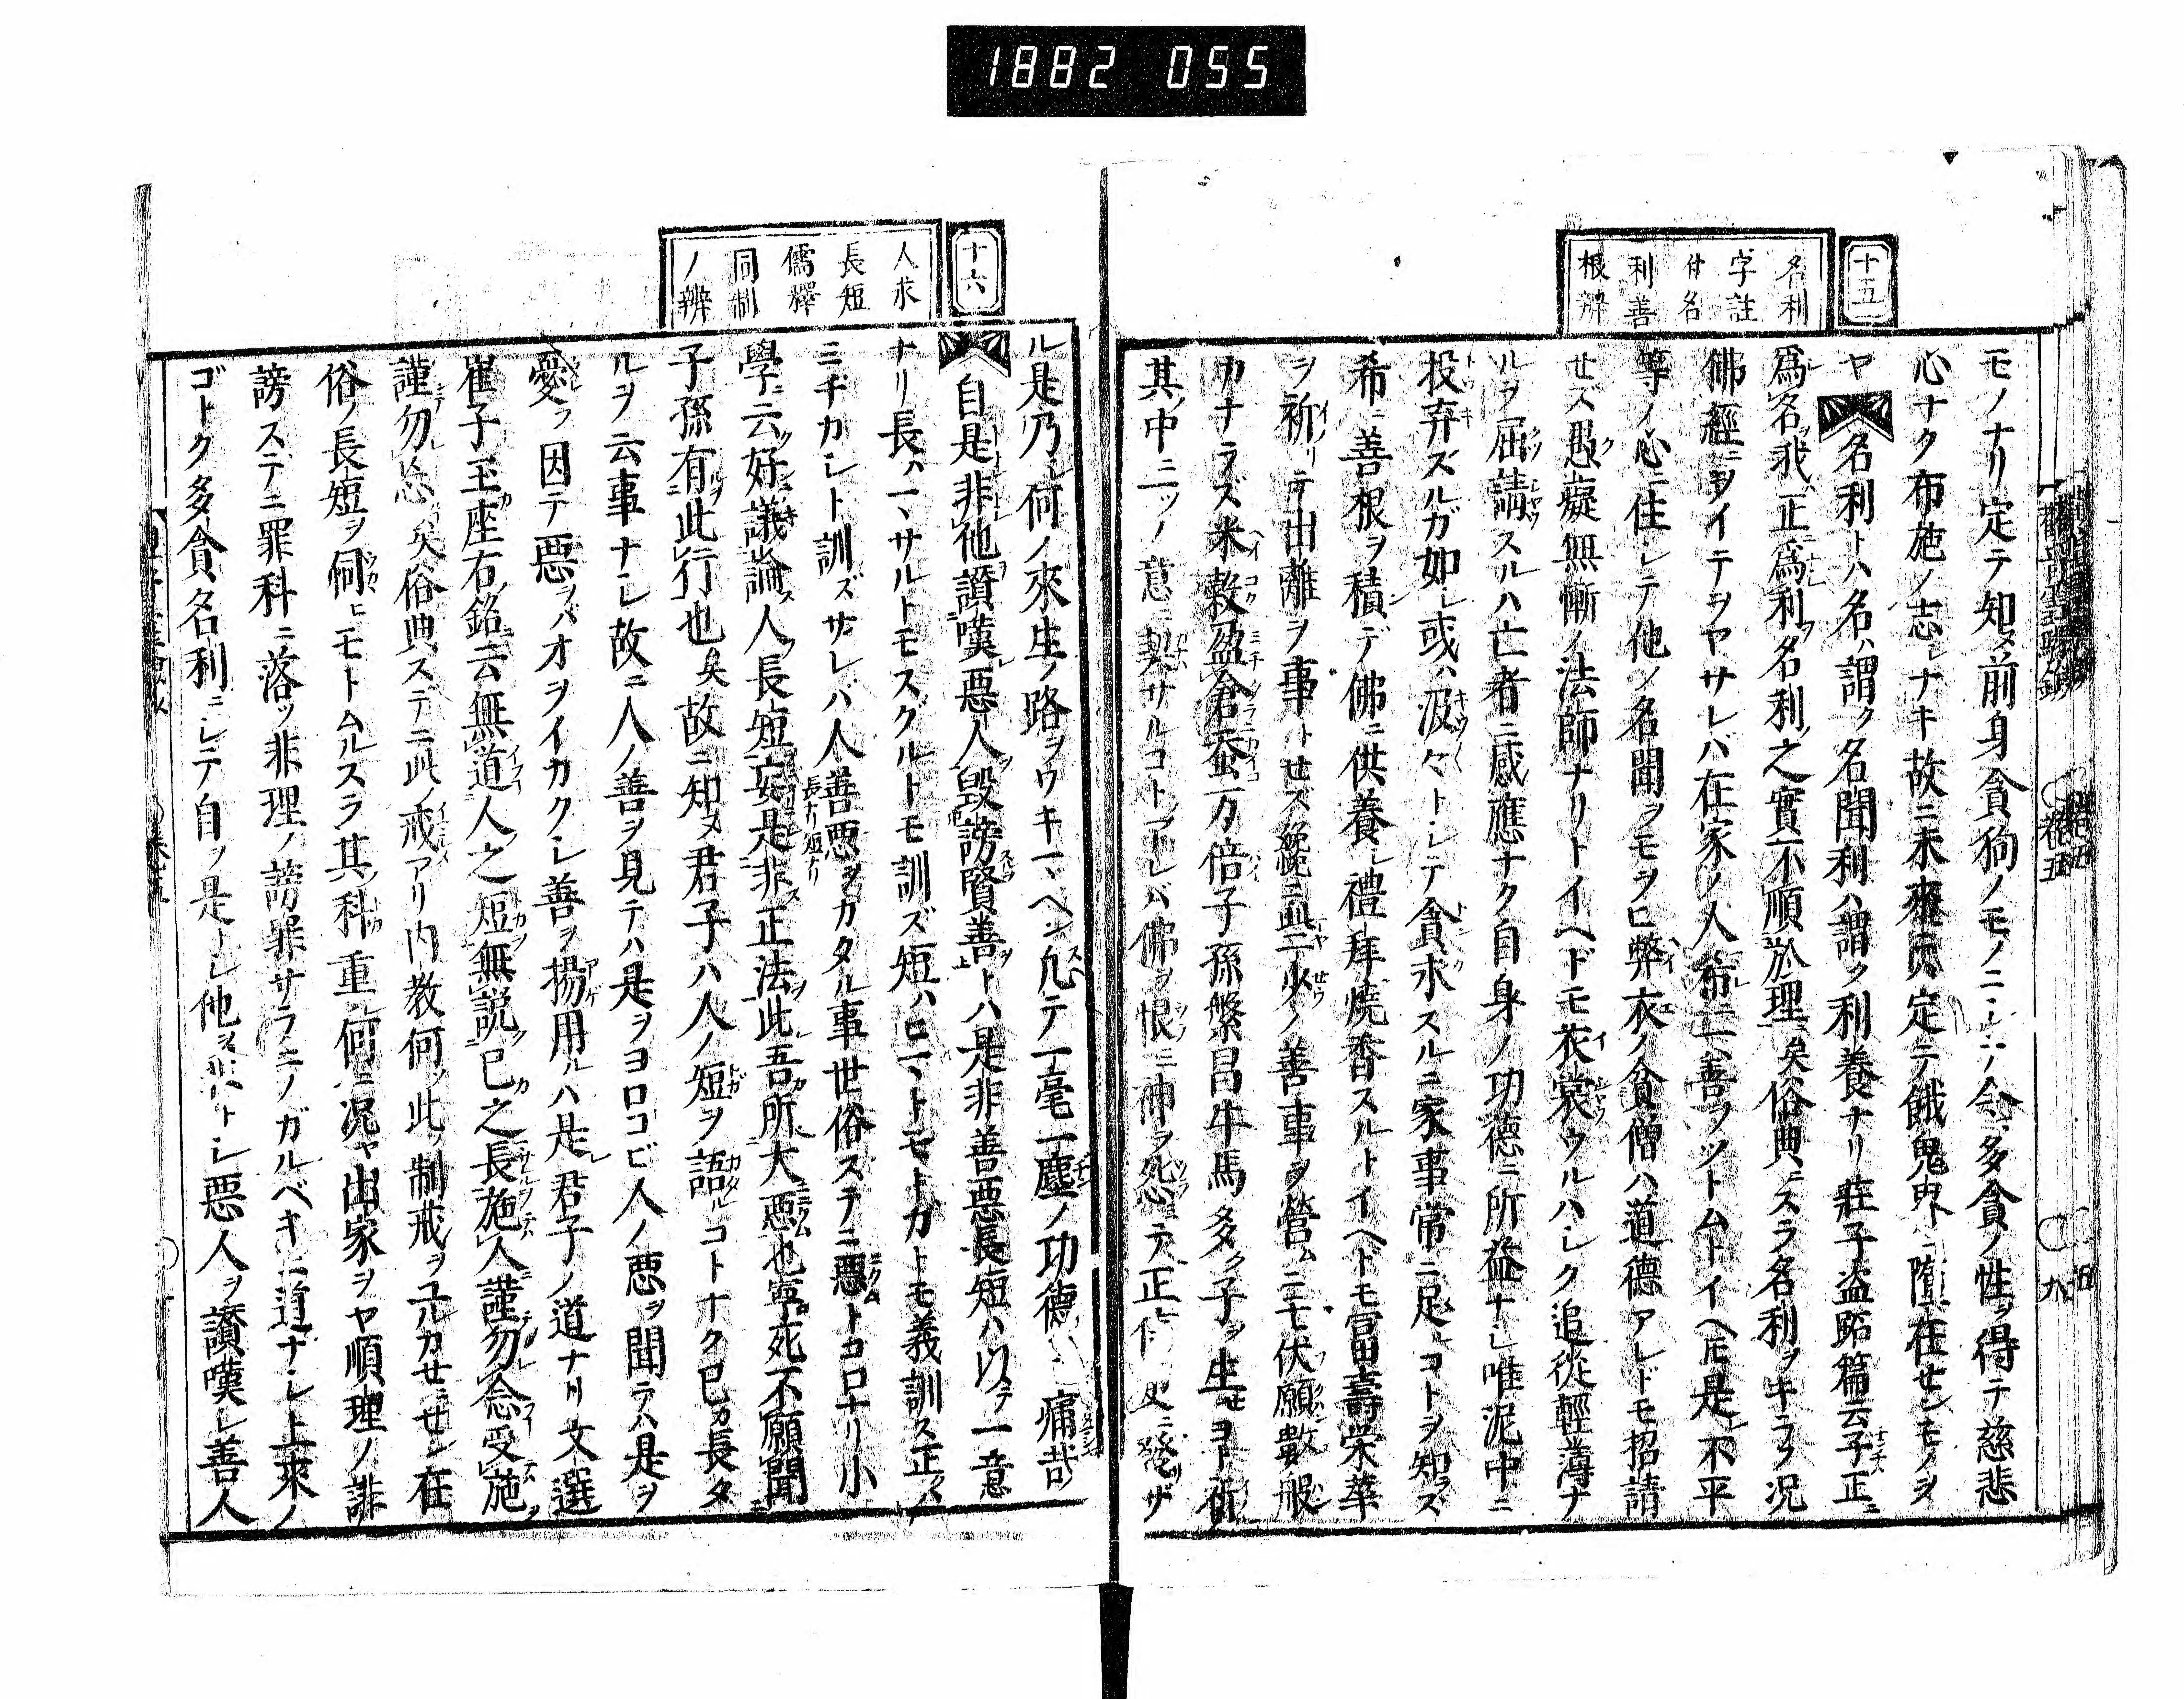 1882 055
十五
名利
字註
付名
利善
根辨
モノナリ定テ知ヌ前身貪狗ノモノニシテ今多貪ノ性ヲ得テ慈悲
心ナク布施ノ志シナキ故ニ未來モ定テ餓鬼界ニ墮在センモノヲ
ヤ名利トハ名ハ謂ク名聞利ハ謂ク利養ナリ莊子盗跖篇云子正
爲名我正爲利名利之實不順於理矣俗典ニスラ名利ヲキラフ況
佛經ニヲイテヲヤサレバ在家ノ人希ニ善ヲツトムトイヘ𪜈是不平
等ノ心ニ住シテ他ノ名聞ヲモヲヒ弊衣ノ貧僧ハ道德アレドモ招請
せズ愚癡無慚ノ法師ナリトイヘドモ衣裳ウルハシク追従輕薄ナ
ルヲ屈請スルハ亡者ニ感應ナク自身ノ功德ニ所益ナシ唯泥中ニ
投弃ズルガ如シ或ハ汲々トシテ貪求スルニ家事常ニ足コトヲ知ラズ
希ニ善根ヲ積デ佛ニ供養シ禮拜燒香スルトイヘドモ冨壽栄華
ヲ祈リテ出離ヲ事トせズ纔ニ些少ノ善事ヲ營ムニモ伏願數般
カナラズ米穀盈倉蚕万倍子孫繁昌牛馬多ク子ヲ生せヨト祈
其中ニツノ意ニ契サルコトアレバ佛ヲ恨ミ神ヲ怨テ正
十六
人求
長短
儒釋
同制
ノ辨
ル是乃シ何ノ來生ノ路ヲウキマヘン凢テ一毫一塵ノ功德 痛哉
自是非他讃嘆惡人毀謗賢善トハ是非善惡長短ハ以テ一意
ナリ長ハマサルトモスグルトモ訓ズ短ハヒマトモトガトモ義訓ス正ノ
ニチカシト訓ズサレハ人善惡長ナリ短ナリヲカタル事世俗ステニ惡トコロナリ小
學ニ云好議論人長短妄是非正法此吾所大惡也寧死不願聞
子孫有此行也矣故ニ知ヌ君子ハ人ノ短ヲ語ルコトナク已カ長タ
ルヲ云事ナシ故ニ人ノ善ヲ見テハ是ヲヨロコビ人ノ惡ヲ聞テハ是ヲ
憂フ因テ惡ヲバオヲイカクシ善ヲ揚用ルハ是レ君子ノ道ナリ文選
崔子玉座右銘云無道人之短無説已之長施人謹勿念受施
謹勿忘矣俗典ステニ此ノ戒アリ内教何ソ此ノ制戒ヲユルカせニせン在
俗ノ長短ヲ伺ヒモトムルスラ其ノ科重シ何ニ況ヤ出家ヲヤ順理ノ誹
謗ステニ罪科ニ落ツ非理ノ謗罪サラニノガルベキニ道ナシ上來ノ
ゴトク多貪名利ニシテ自ヲ是トシ他ヲ非トシ惡人ヲ讃嘆シ善人